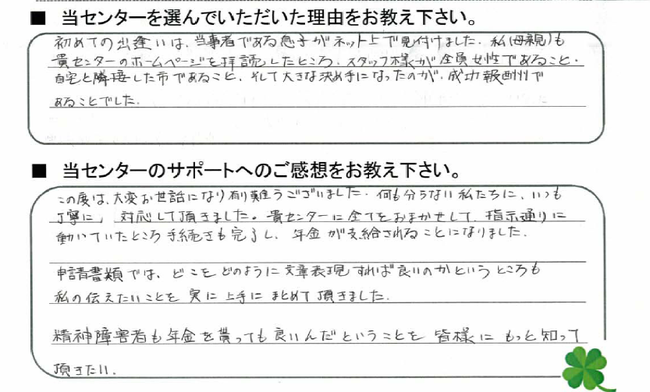 ■ 当センターを選んでいただいた理由をお教え下さい。
初めての出逢いは、当事者である息子がネット上で見付けました。私(母親)も
貴センターのホームページを拝読したところ、スタッフ様が全員女性であること、
自宅と隣接した市であること、そして大きな決め手になったのが、成功報酬で
あることでした。
■ 当センターのサポートへのご感想をお教え下さい。
この度は、大変お世話になり有難うございました。何も分らない私たちに、いつも
丁寧に、対応して頂きました。貴センターに全てをおまかせして、指示通りに
動いていたところ手続きも完了し、年金が支給されることになりました。
申請書類では、どこをどのように文章表現すれば良いのかというところも
私の伝えたいことを実に上手にまとめて頂きました。
精神障害者も年金を貰っても良いんだということを皆様にもっと知って
頂きたい。